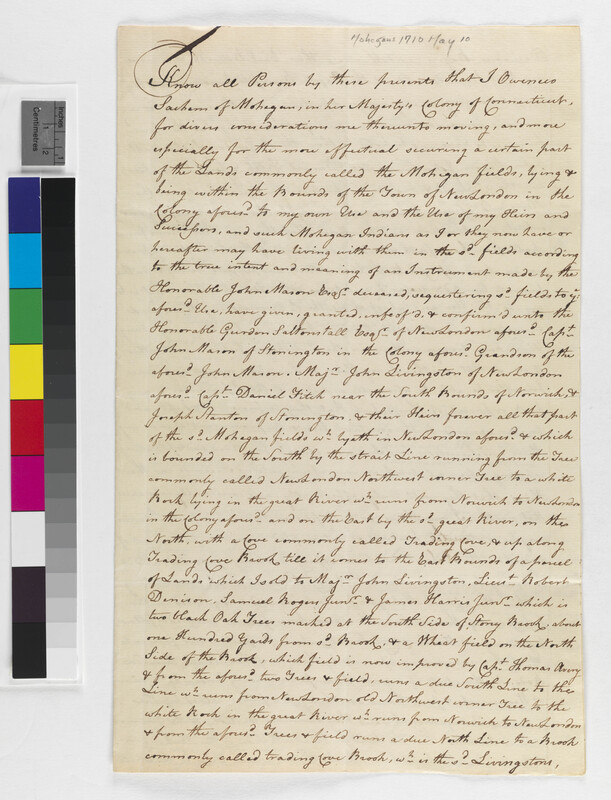 Mohegans 1710 May 10
Know all Persons by these presents that I Oweneco
Sachem of Mohegan, in her Majesty's Colony of Connecticut,
for divers considerations me thereunto moving, and more
especially for the more effectual securing a certain part
of the Lands commonly called the Mohegan fields, lying &
being within the Bounds of the Town of New London in the
Colony afores.d to my own Use and the Use of my Heirs and
Successors, and such Mohegan Indians as I or they now have or
hereafter may have living with them in the s.d fields according
to the true intent and meaning of an Instrument made by the
Honorable John Mason Esq.r deceased, sequestering s.d fields to y.e
afores.d Use, have given, granted, infeof'd. & confirm'd unto the
Honorable Gurdon Saltonstall Esq.r of New London afores.d Cap.t
John Mason of Stonington in the Colony afores.d Grandson of the
afores.d John Mason. Maj.r John Livingston of New London
afores.d Cap.t Daniel Fitch near the South Bounds of Norwich, &
Joseph Stanton of Stonington & their Heirs forever all that part
of the s.d Mohegan fields w.h lyeth in New London afores.d & which
is bounded on the South by the strait Line running from the Tree
commonly called New London Northwest corner Tree to a white
Rock lying in the great River w.h runs from Norwich to New London
in the Colony afores.d and on the East by the s.d great River, on the
North with a Cove commonly called Trading Cove, & up along
Trading Cove Brook till it comes to the East Bounds of a parcel
of Lands which I sold to Maj.r John Livingston, Lieu.t Robert
Denison, Samuel Rogers Jun.r & James Harris Jun.r which is
two black Oak Trees marked at the South Side of Stony Brook, about
one Hundred Yards from s.d Brook, & a Wheat field on the North
Side of the Brook, which field is now improved by Cap.t Thomas Avery
& from the afores.d two Trees & field, runs a due South Line to the
Line w.h runs from New London old Northwest corner Tree to the
white Rock in the great River w.h runs from Norwich to New London
& from the afores.d Trees & field runs a due North Line to a Brook
commonly called trading Cove Brook, w.h is the s.d Livingstons,
Inches
Centimetres
1
2
1